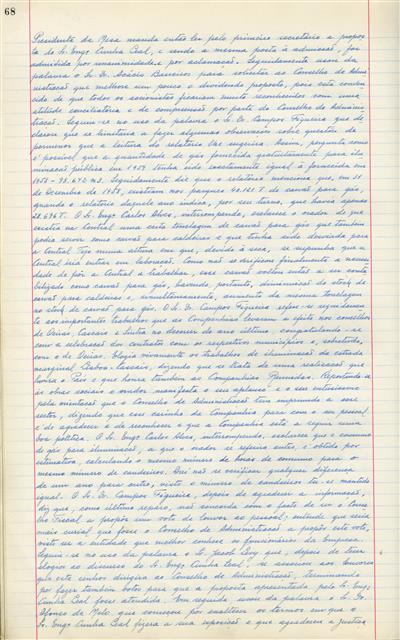 68
Presidente da Mesa manda então ler pelo primeiro secretário a propos
ta do Sr. Engº Cunha Leal, e sendo a mesma posta à admissão, foi
admitida por unanimidade e por aclamação. Seguidamente usou da
palavra o Sr. Dr. Acácio Barreiros para solicitar ao Conselho de Admi
nistração que melhore um pouco o dividendo proposto, pois está conven
cido de que todos os accionistas ficariam muito reconhecidos com uma
atitude conciliatória e de compreensão por parte do Conselho de Adminis
tração. Segue-se no uso da palavra o Sr. Dr. Campos Figueira que de
clarou que se limitaria a fazer algumas observações sobre questões de
pormenor que a leitura do relatório lhe sugerira. Assim, pergunta como
é possível que a quantidade de gás fornecida gratuitamente para ilu
minação pública em 1959 tenha sido exactamente igual à fornecida em
1958 - 78.670 m3. Seguidamente diz que o relatório menciona que, em 31
de Dezembro de 1958, existiam nos parques 40.121 T. de carvão para gás,
quando o relatório daquele ano indica, por seu turno, que havia apenas
28.696 T. O Sr. Engº Carlos Alves, interrompendo, esclarece o orador de que
existia na Central uma certa tonelagem de carvão para gás que também
podia servir como carvão para caldeiras e que tinha sido desviada para
a Central Tejo numa altura em que, devido à seca, se supunha que a
Central iria entrar em laboração. Como não se verificou finalmente a necessi
dade de pôr a Central a trabalhar, esse carvão voltou antes a ser conta
bilizado como carvão para gás, havendo, portanto, diminuição do stock de
carvão para caldeiras e, simultâneamente, aumento da mesma tonelagem
no stock de carvão para gás. O Sr. Dr. Campos Figueira refere-se seguidamen
te aos importantes trabalhos que as Companhias levaram a efeito nos concelhos
de Oeiras, Cascais e Sintra no decorrer do ano último, congratulando-se
com a celebração dos contratos com os respectivos municípios e, sobretudo,
com o de Oeiras. Elogia vivamente os trabalhos de iluminação da estrada
marginal Lisboa-Cascais, dizendo que se trata de uma realização que
honra o País e que honra também as Companhias Reunidas. Reportando-se
às obras sociais o orador manifesta o seu aplauso e o seu entusiasmo
pela orientação que o Conselho de Administração tem imprimido a esse
sector, dizendo que esse carinho da Companhia para com o seu pessoal
é de agradecer e de reconhecer e que a Companhia está a seguir uma
boa política. O Sr. Engº Carlos Alves, interrompendo, esclarece que o consumo
de gás para iluminação, a que o orador se referiu antes, é obtido por
estimativa, calculando o mesmo número de horas de consumo para o
mesmo número de candeeiros. Daí não se verificar qualquer diferença
de um ano para outro, visto o número de candeeiros ter-se mantido
igual. O Sr. Dr. Campos Figueira, depois de agradecer a informação,
diz que, como último reparo, não concorda com o facto de ser o Conse
lho Fiscal a propor um voto de louvor ao pessoal; entende que seria
mais curial que fosse o Conselho de Administração a propor este voto,
visto ser a entidade que melhor conhece os funcionários da Empresa.
Segue-se no uso da palavra o Sr. Jacob Levy que, depois de tecer
elogios ao discurso do Sr. Engº Cunha Leal, se associou aos louvores
que este senhor dirigira ao Conselho de Administração, terminando
por fazer também votos para que a proposta apresentada pelo Sr. Engº
Cunha Leal fosse atendida. Em seguida usou da palavra o Sr. Dr.
Afonso de Melo que começou por enaltecer os termos em que o
Sr. Engº Cunha Leal fizera a sua exposição e que agradecera a justiça